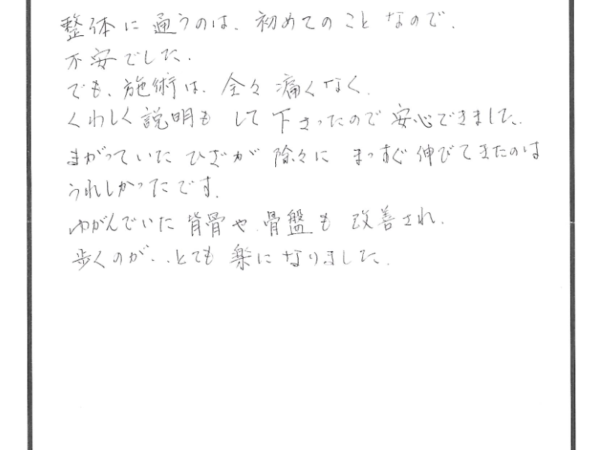 整体に通うのは、初めてのことなので、
不安でした。
でも、施術は、全々痛くなく、
くわしく説明もして下さったので安心できました。
まがっていたひざが除々にまっすぐ伸びてきたのは
うれしかったです。
ゆがんでいた背骨や骨盤も改善され、
歩くのが、とても楽になりました。